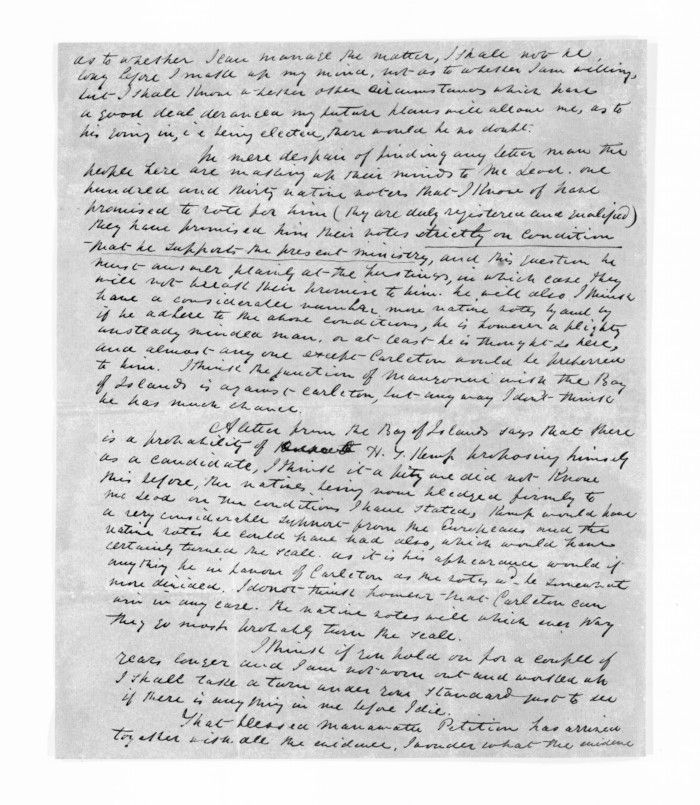 as to whether I can manage the matter, I shall not be
long before I make up my mind, not as to whether I am willing,
but I shall know whether other circumstances which have
a good deal deranged my future plans will allow me, as to
his going in, i.e. being elected, there would be no doubt.
In mere despair of finding any better man the
people here are making up their minds to McLeod. one
hundred and thirty native voters that I know of have
promised to vote for him (they are duly registered and qualified)
they have promised him their votes strictly on condition
that he supports the present ministry, and this question he
must answer plainly at the hustings, in which case they
will not break their promise to him. he will also I think
have a considerable number more native votes by and by
if he adhere to the above conditions, he is however a flighty
unsteady minded man, or at least he is thought so here,
and almost any one except Carleton would be preferred
to him. I think the junction of Mangonui with the Bay
of Islands is against Carleton, but any way I don't think
he has much chance.
A letter from the Bay of Islands says that there
is a probability of H. T. Kemp proposing himself
as a candidate, I think it a pity we did not know
this before, the natives being now pledged firmly to
McLeod on the conditions I have stated, Kemp would have
a very considerable support from the Europeans and the
native votes he could have had also, which would have
certainly turned the scale. as it is his appearance would if
anything be in favour of Carleton as the votes wd. be somewhat
more divided. I do not think however that Carleton can
win in any case. the native votes will which ever way
they go most probably turn the scale.
I think if you hold on for a couple of
years longer and I am not worn out and worked up
I shall take a turn under your standard just to see
if there is anything in me before I die.
That blessed Manawatu Petition has arrived
together with all the evidence, I wonder what the evidence